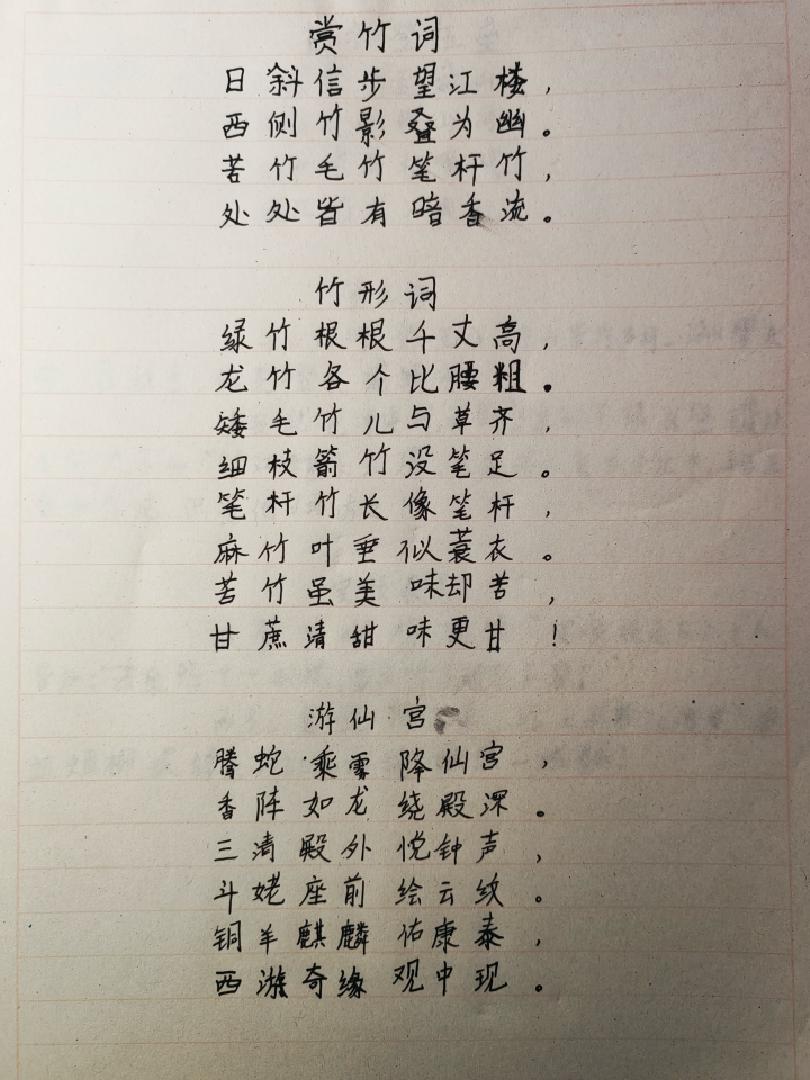 赏竹词
日斜信步望江楼，
西侧竹影叠为幽。
苦竹毛竹笔杆竹，
处处皆有暗香流。
竹形词
绿竹根根千丈高，
龙竹各个比腰粗。
矮毛竹儿与草齐，
细枝箭竹没笔足。
笔杆竹长像笔杆，
麻竹叶垂似蓑衣。
苦竹虽美味却苦，
甘蔗清甜味更甘！
游仙宫
腾蛇乘雾降仙宫，
香阵如龙绕殿深。
三清殿外悦钟声，
斗姥座前绘云纹。
铜羊麒麟佑康泰，
西游奇缘观中现。